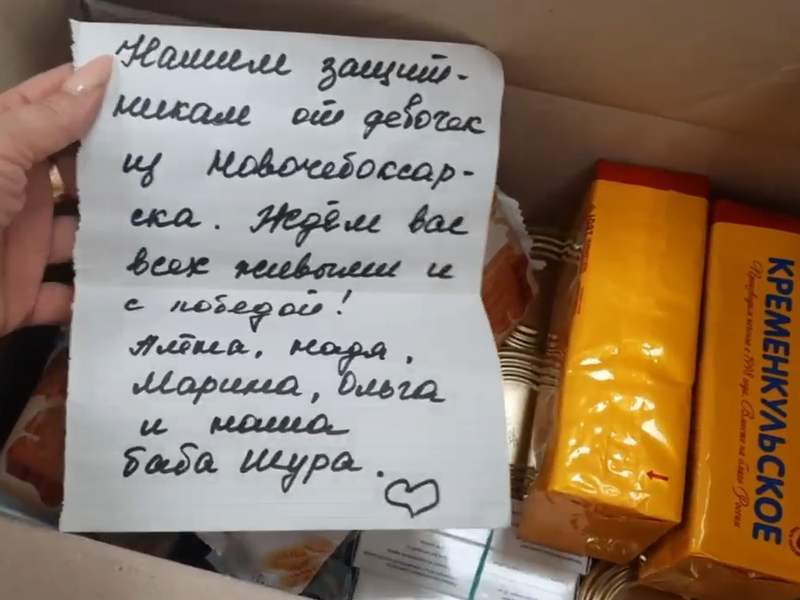 Нашим защит-
никам от девочек
из Новочебоксар-
ска. Ждём вас
всех живыми и
с победой!
Алёна, Надя,
Марина, Ольга
и наша
баба Шура.
КРЕМЕНКУЛЬСКОЕ